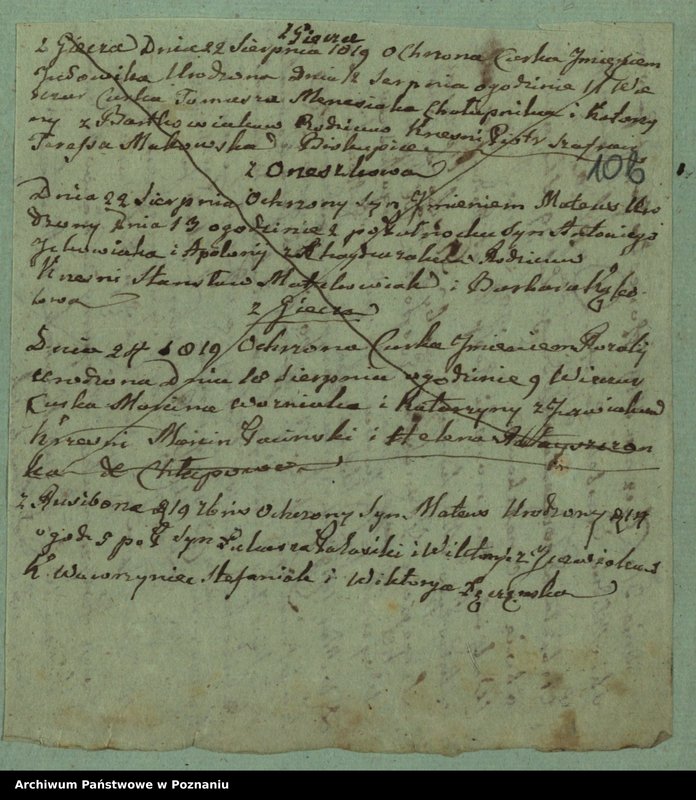 z Giecza
z Giecza Dnia 22 Sierpnia 1819 Ochrzona Curka Jmieniem
Ludowika Urodzona dnia 12 Serpnia ogodzinie 11 Wie
czur Curka Tomasza Menesiaka Chałupnika i Katarzy
ny z Bartkowiakow Rodzicow Krzesni Piotr Szafran
Teressa Makowska Biskupice
106
z Oneszkowa
Dnia 22 Sierpnia Ochrzony Syn Jmieniem Mateus Uro
dzony Dnia 13 ogodzinie 2 popułnochu Syn Antoniego
i Apolony Rodzicow
Krzesni Stanisław Matelowiak i Barbara
kowa
z Giecza
Dnia 24 1819 Ochrzona Curka Jmieniem Rozalij
Urodzona Dnia 18 Sierpnia ogodzinie 9 Wieczur
Curka Marcina Wozniaka i Katarzyny z Jozwiakow
Krzesni Marcin Łacinski i Helena
ka z Chłapowa
z Rusiborza d 19 7bris Ochrzony Syn Mateus Urodzony d 14
ogodz 5 poł Syn Łukasza i Wiktoryi z Jozwiakow
K. Wawrzyniec Stefaniak i Wiktorya
Archiwum Państwowe w Poznaniu